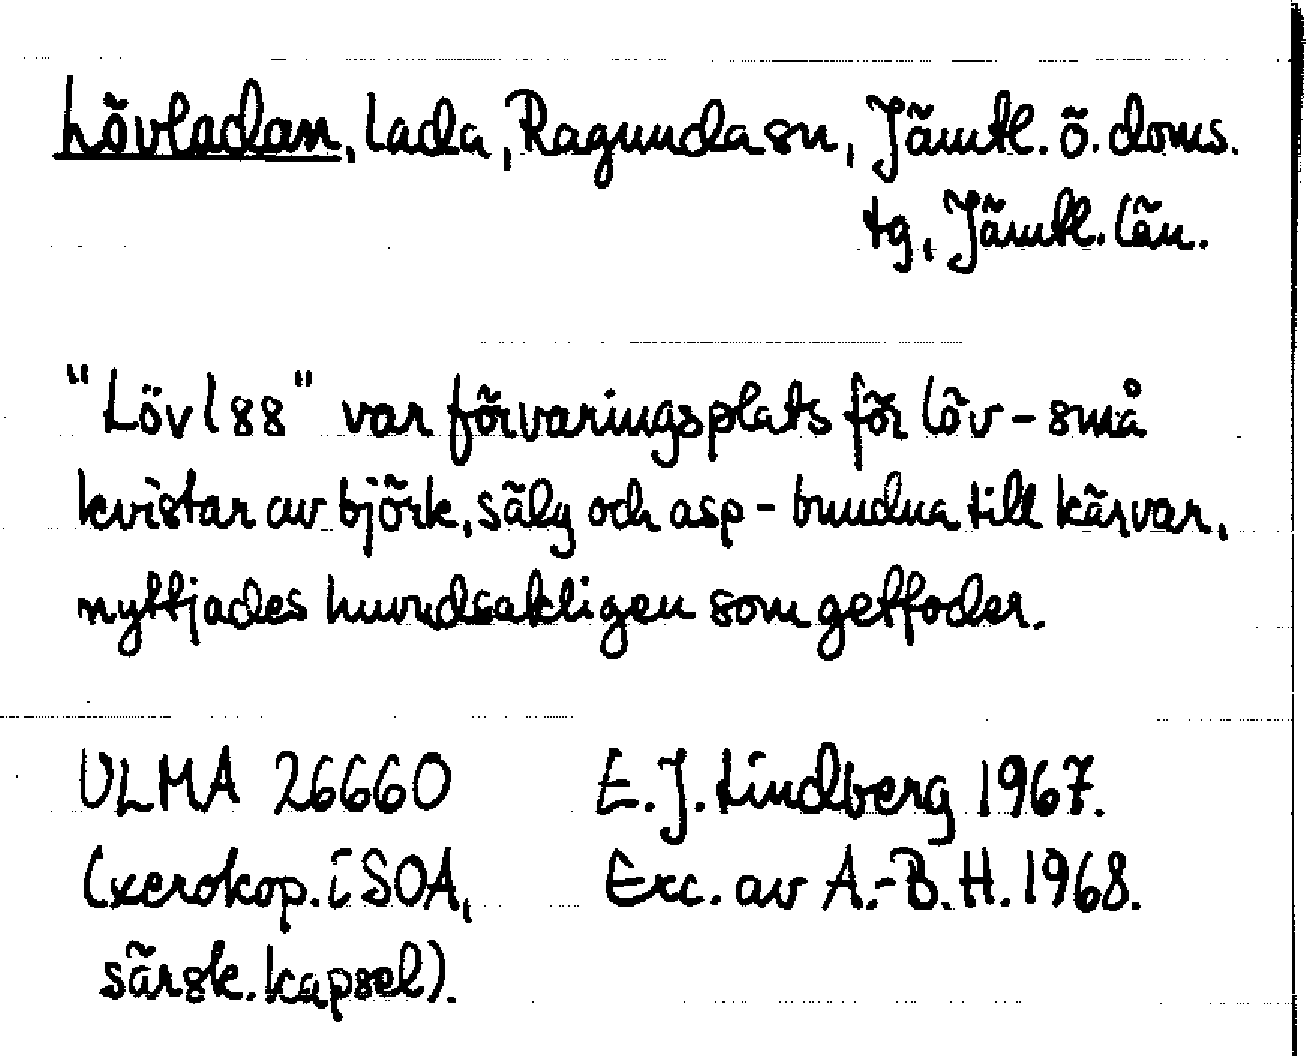 Lövladan, lada, Ragunda sn, Jämtl. ö. doms.
tg, Jämtl. län.
"Lövl88" var förvaringsplats för löv - små
kvistar av björk, sälg och asp - bundna till kärvar,
nyttjades huvudsakligen som getfoder.
ULMA 26660 E. J. Lindberg 1967.
(xerokop. i SOA, Exc. av A.-B. H. 1968.
särsk. kapsel).